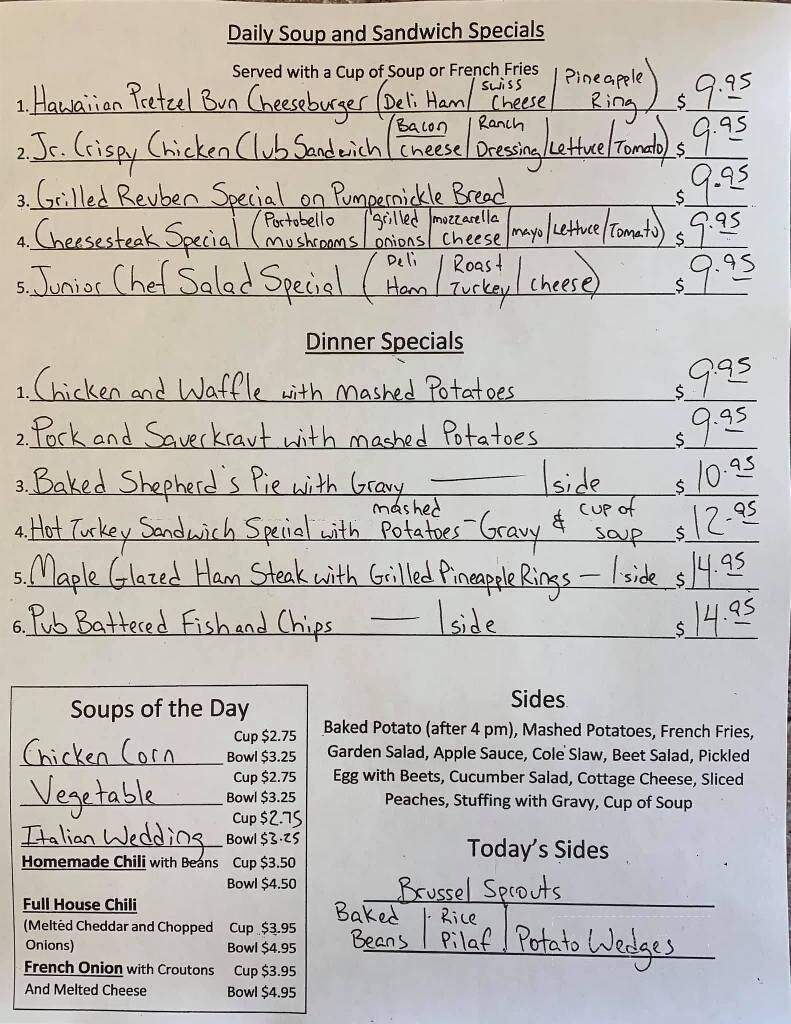 Daily Soup and Sandwich Specials
Served with a Cup of Soup or French Fries
1. Hawaiian Pretzel Bun Cheeseburger (Deli Ham / Swiss Cheese / Pineapple Ring) $ 9.95
2. Jr. Crispy Chicken Club Sandwich (Bacon / cheese / Ranch Dressing / Lettuce / Tomato) $ 9.95
3. Grilled Reuben Special on Pumpernickle Bread $ 9.95
4. Cheesesteak Special (Portobello mushrooms / grilled onions / mozzarella cheese / mayo / Lettuce / Tomato) $ 9.95
5. Junior Chef Salad Special (Deli Ham / Roast Turkey / cheese) $ 9.95
Dinner Specials
1. Chicken and Waffle with Mashed Potatoes $ 9.95
2. Pork and Sauerkraut with mashed Potatoes $ 9.95
3. Baked Shepherd's Pie with Gravy — 1 side $ 10.95
4. Hot Turkey Sandwich Special with mashed Potatoes - Gravy & cup of soup $ 12.95
5. Maple Glazed Ham Steak with Grilled Pineapple Rings — 1 side $ 14.95
6. Pub Battered Fish and Chips — 1 side $ 14.95
Soups of the Day
Cup $2.75
Chicken Corn Bowl $3.25
Cup $2.75
Vegetable Bowl $3.25
Cup $2.75
Italian Wedding Bowl $3.25
Homemade Chili with Beans Cup $3.50
Bowl $4.50
Full House Chili
(Melted Cheddar and Chopped Cup $3.95
Onions) Bowl $4.95
French Onion with Croutons Cup $3.95
And Melted Cheese Bowl $4.95
Sides
Baked Potato (after 4 pm), Mashed Potatoes, French Fries,
Garden Salad, Apple Sauce, Cole Slaw, Beet Salad, Pickled
Egg with Beets, Cucumber Salad, Cottage Cheese, Sliced
Peaches, Stuffing with Gravy, Cup of Soup
Today's Sides
Brussel Sprouts
Baked Beans / Rice Pilaf / Potato Wedges